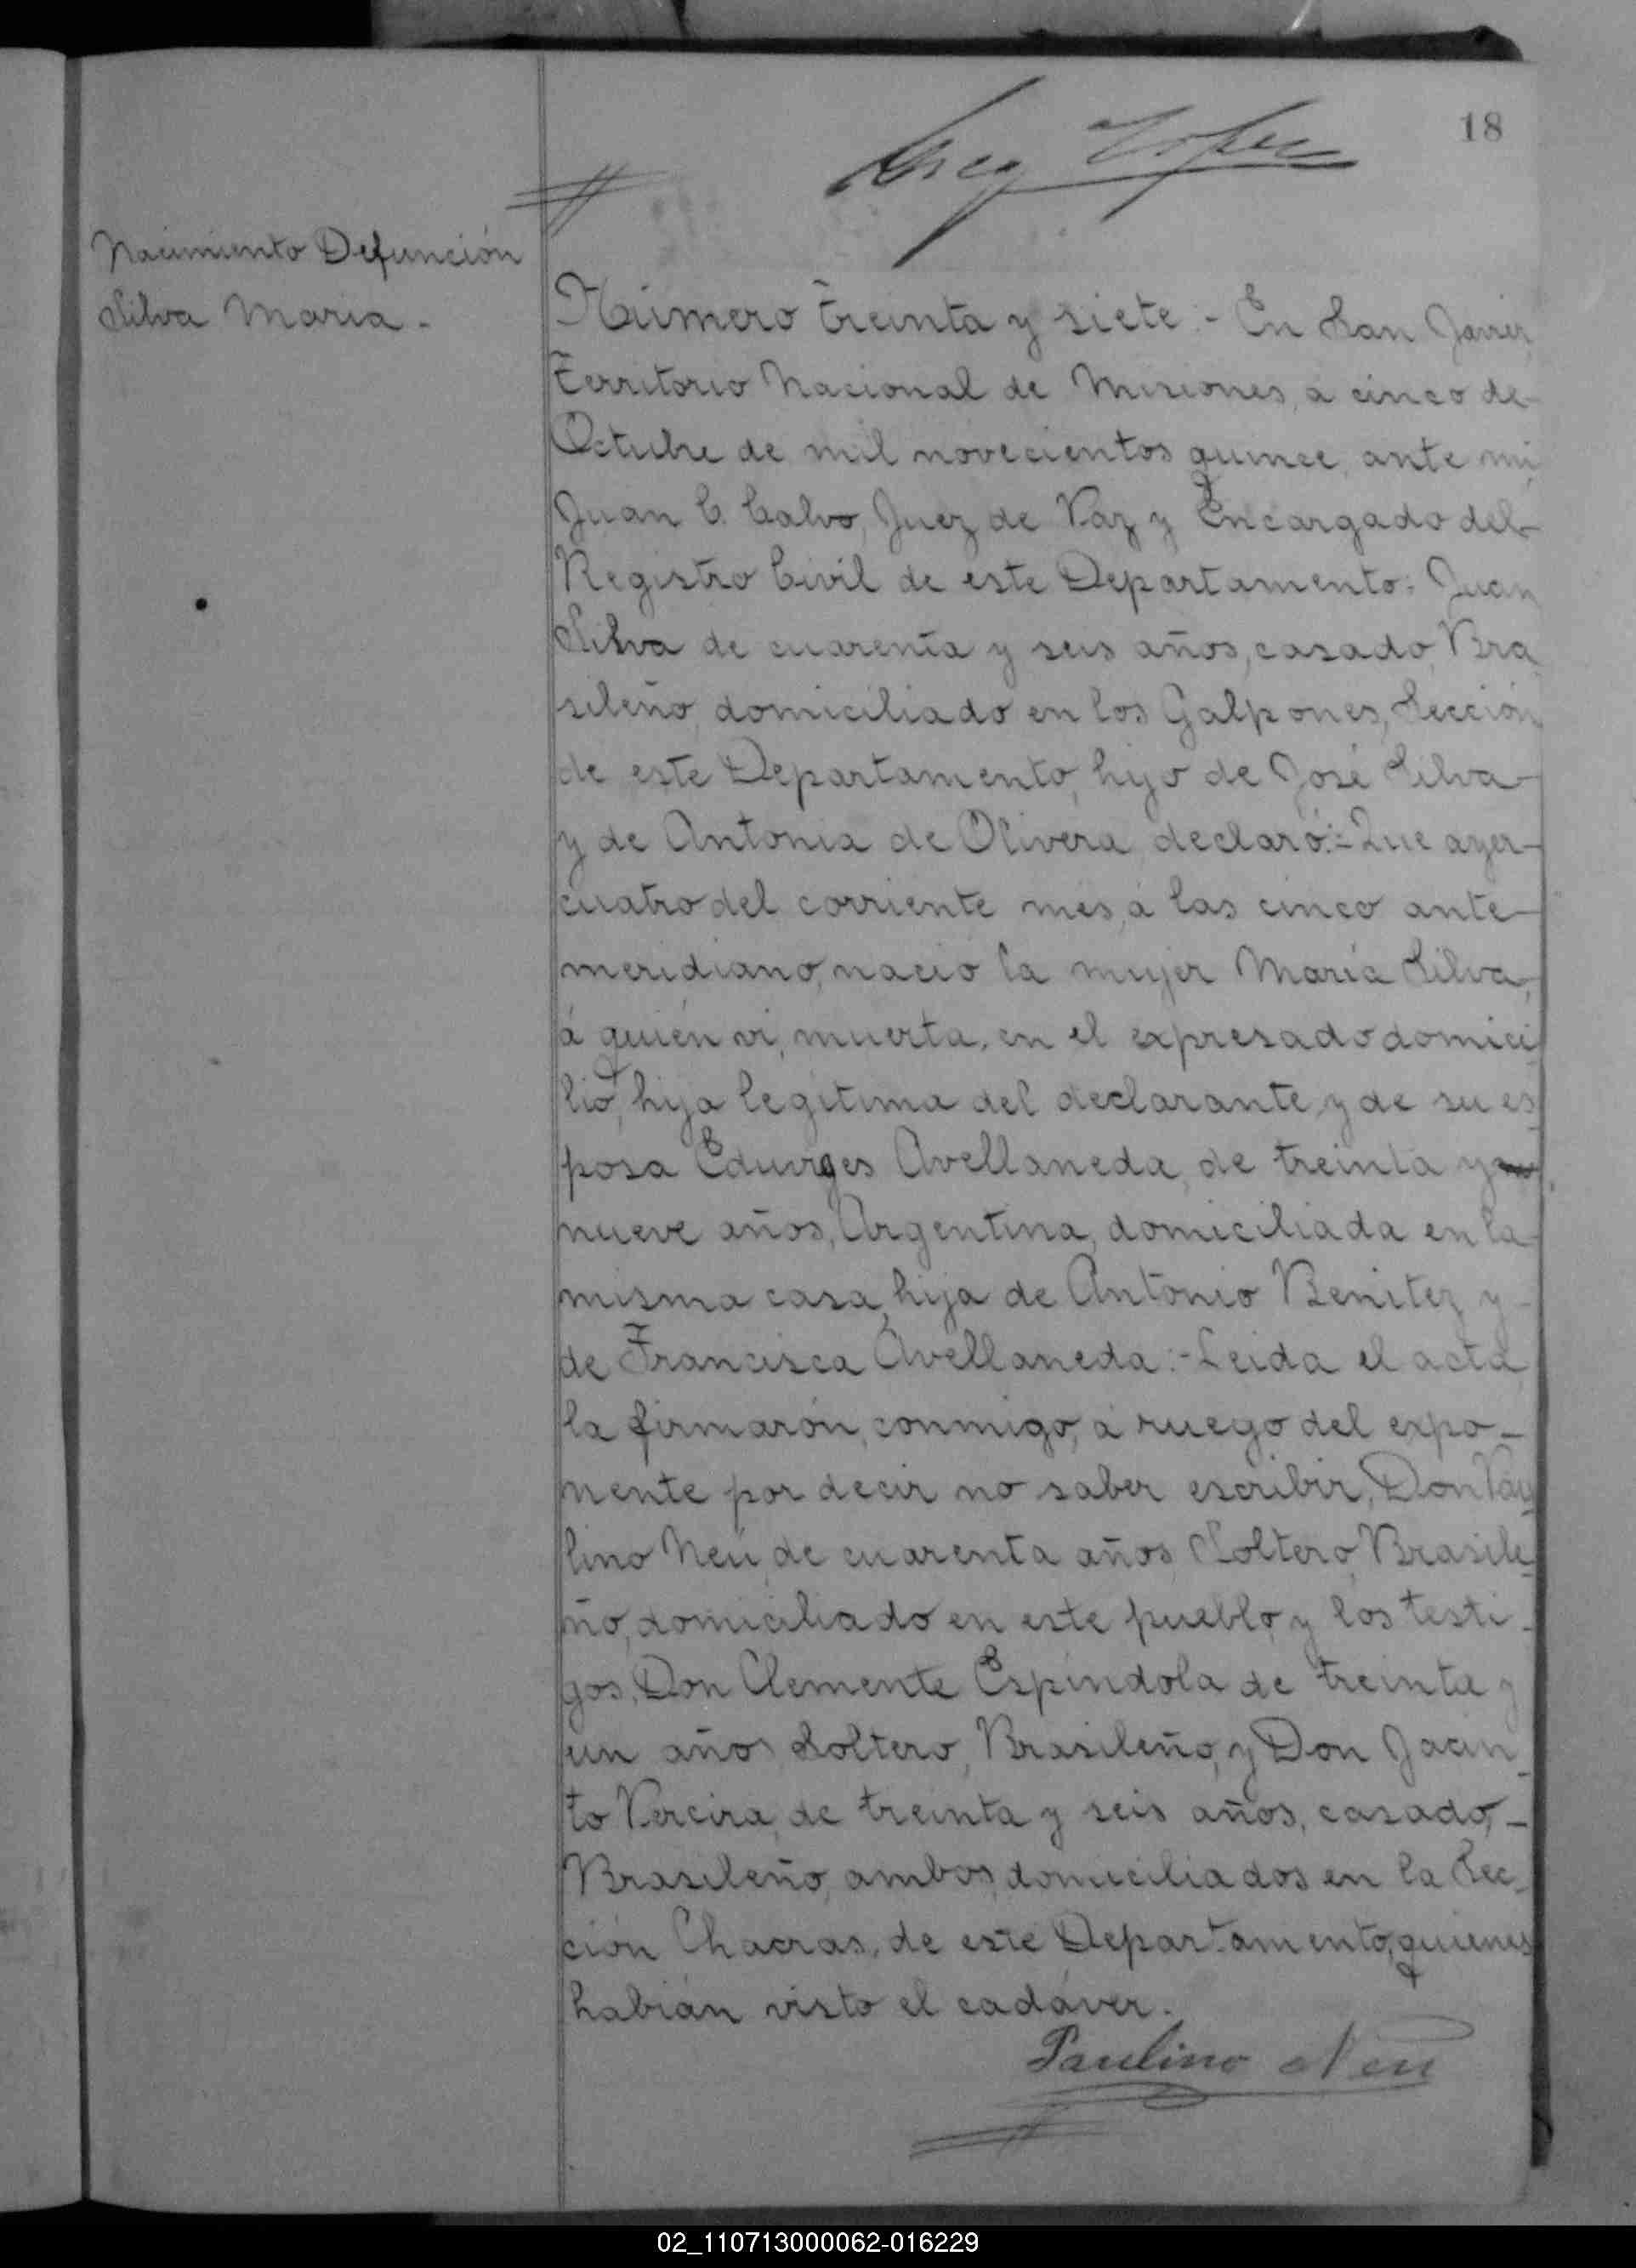 18
Greg Lopez
Nacimiento Defunción
Silva Maria.
Número treinta y siete:- En San Javier,
Territorio Nacional de Misiones, a cinco de
Octubre de mil novecientos quince, ante mi,
Juan C. Calvo, Juez de Paz y Encargado del
Registro Civil de este Departamento: Juan
Silva de cuarenta y seis años, casado, Bra
sileño, domiciliado en los Galpones, Sección
de este Departamento, hijo de José Silva
y de Antonia de Olivera, declaró:- Que ayer
cuatro del corriente mes, á las cinco ante
meridiano, nació la mujer María Silva,
á quién vi, muerta, en el expresado domici
lio, hija legitima del declarante, y de su es
posa Eduvges Avellaneda, de treinta y
nueve años, Argentina, domiciliada en la
misma casa, hija de Antonio Benitez y
de Francisca Avellaneda:- Leida el acta,
la firmarón, conmigo, á ruego del expo-
nente por decir no saber escribir, Don Pau
lino Neú, de cuarenta años, Soltero, Brasile
ño, domiciliado en este pueblo, y los testi-
gos, Don Clemente Espíndola de treinta y
un años Soltero, Brasileño, y Don Jacin
to Pereira, de treinta y seis años, casado,-
Brasileño, ambos domiciliados en la Sec-
ción Chacras, de este Departamento, quienes
habián visto el cadáver.
Paulino Neu
02_110713000062-016229